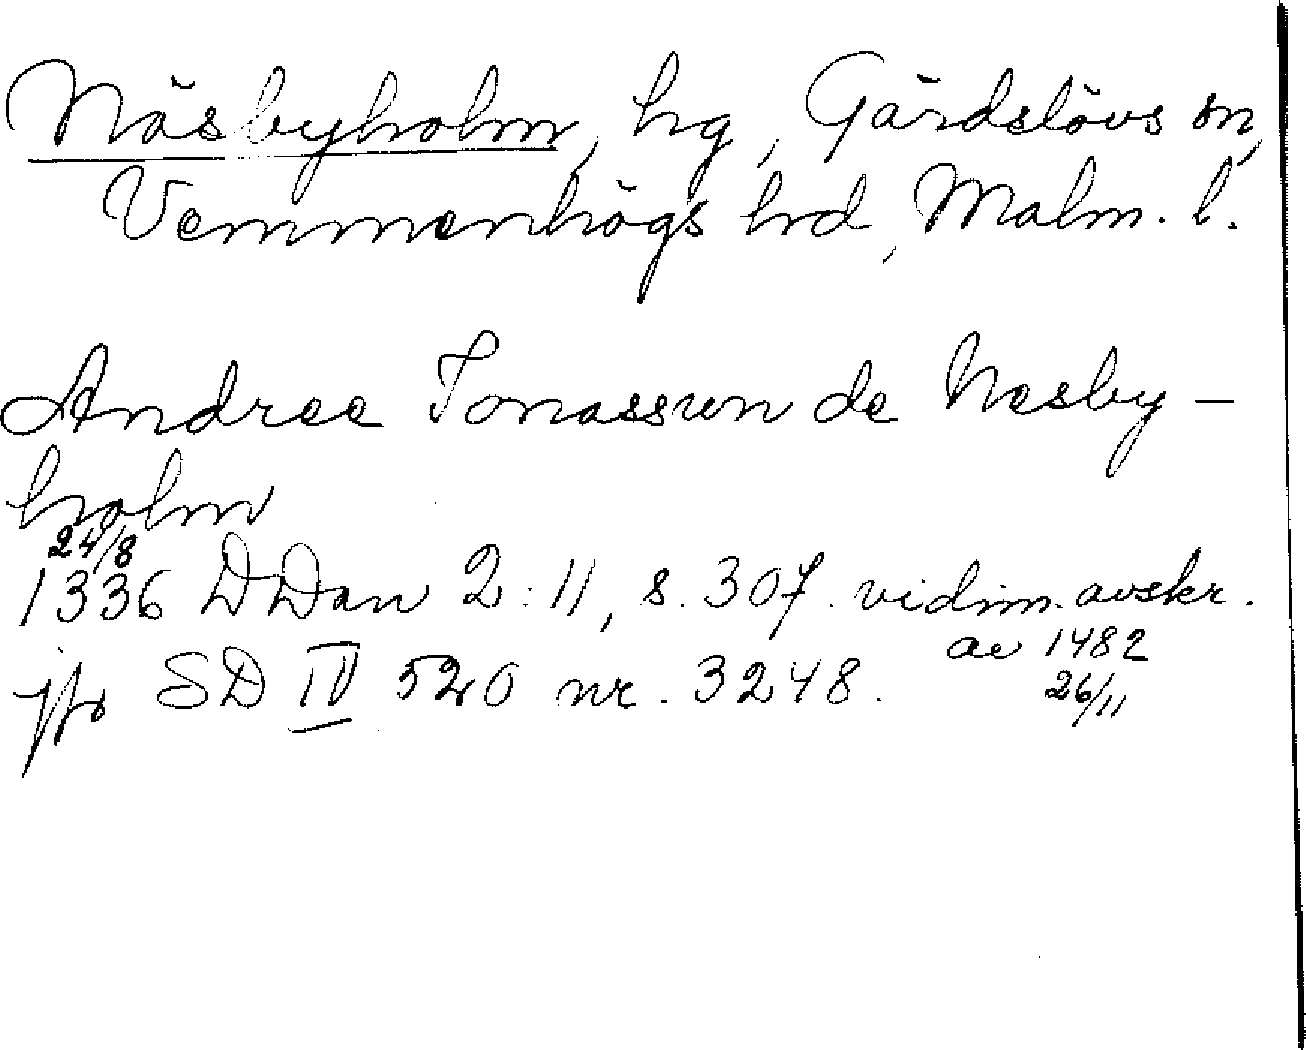 Näsbyholm, hg, Gärdslövs sn,
Vemmenhögs hrd, Malm. l.
Andree Jonassun de Nesby-
holm
24/8
1336 DDan 2:11, s. 307. vidim. avskr.
av 1482
jfr SD IV 520 nr. 3248.
26/11